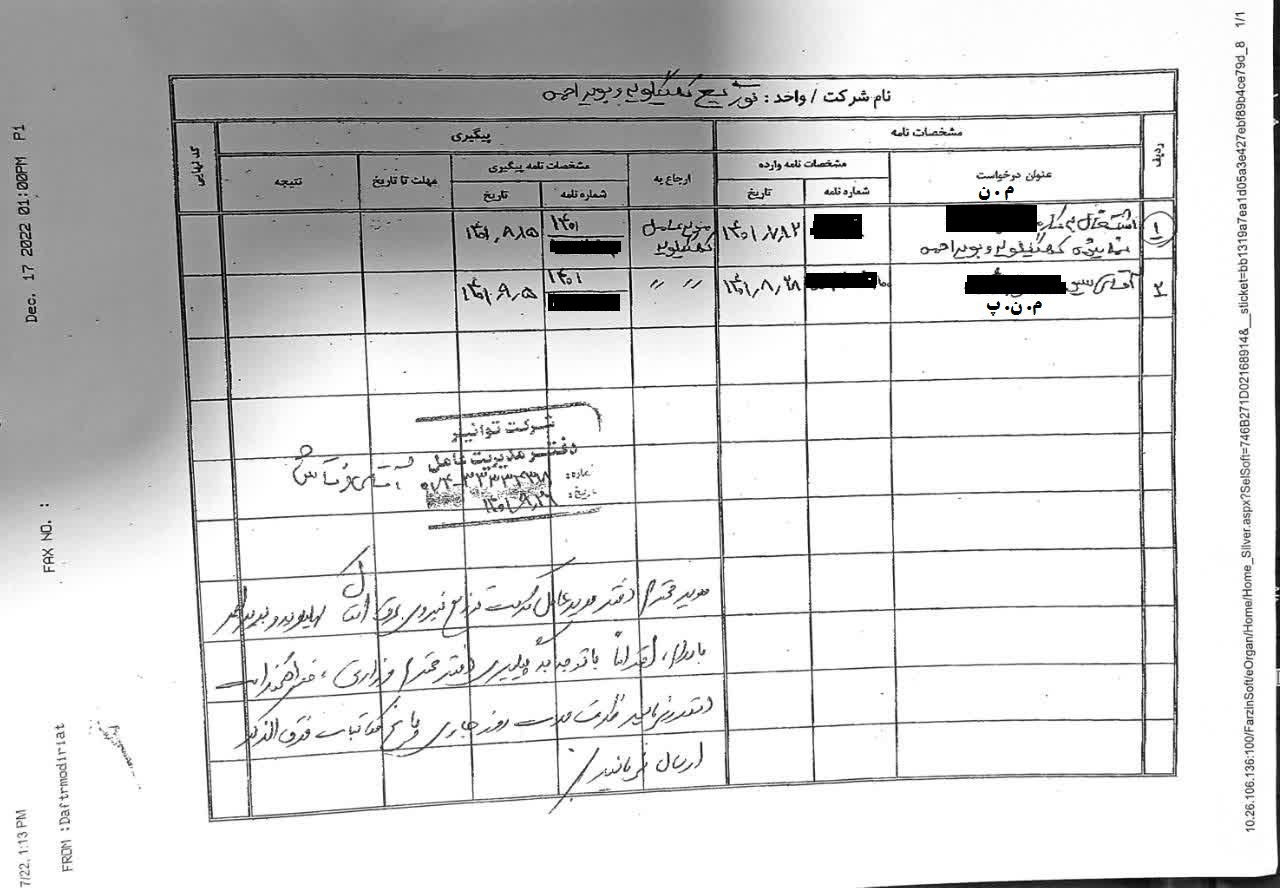 نام شرکت / واحد : توزیع کهگیلویه و بویراحمد
ردیف
مشخصات نامه
پیگیری
کد نهایی
عنوان درخواست
مشخصات نامه وارده
ارجاع به
مشخصات نامه پیگیری
مهلت تا تاریخ
نتیجه
شماره نامه
تاریخ
شماره نامه
تاریخ
م.ن
۱
اشتغال بکار
۱۴۰۱/۷/۱۲
مدیرعامل
۱۴۰۱
۱۴۰۱/۸/۱۵
نماینده کهگیلویه و بویراحمد
کهگیلویه
۲
آقای سید
۱۴۰۱/۸/۲۸
" "
۱۴۰۱
۱۴۰۱/۹/۵
م.ن.پ
شرکت توانیر
دفتر مدیریت عامل
شماره:
تاریخ: ۱۴۰۱/۹/۲۶
آقای
مدیر محترم دفتر مدیرعامل شرکت توزیع نیروی برق استان کهگیلویه و بویراحمد
با سلام، احتراماً با توجه به پیگیری دفتر محترم وزارتی، خواهشمند است
دستور فرمایید ظرف مدت روز جاری پاسخ مکاتبات فوق الذکر
ارسال فرمائید
Dec. 17 2022 01:00PM P1
FAX NO. :
FROM :Daftrmodiriat
7/22, 1:13 PM
10.26.106.136:100/FarzinSoft/eOrgan/Home/Home_Silver.aspx?SelSoft=746B271D02168914&__sticket=bb1319a7ea1d05a3e427ebf89b4ce79d_8 1/1